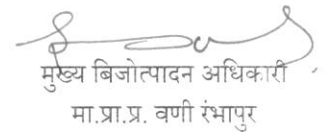 मुख्य बिजोत्पादन अधिकारी
मा.प्रा.प्र. वणी रंभापुर